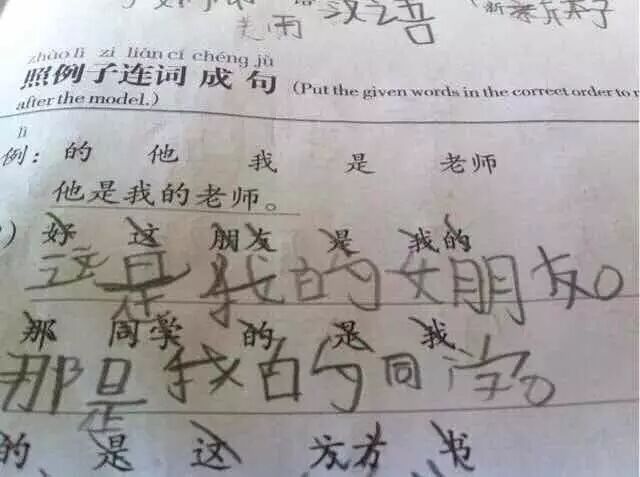 汉语
zhào lì zi lián cí chéng jù
照例子连词成句 (Put the given words in the correct order to r
after the model.)
lì
例: 的 他 我 是 老师
他是我的老师。
) 好 这 朋友 是 我的
这是我的女朋友。
那 同学 的 是 我
那是我的同学。
的 是 这 方方 书